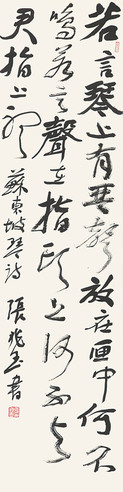 若言琴上有琴聲放在匣中何不
鳴若言聲在指頭上何不於
君指上聽 蘇東坡琴詩 張兆玉書